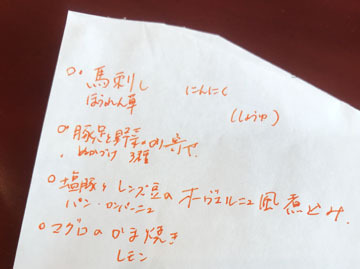 ○ 馬刺し にんにく
ほうれん草 (しょうゆ)
○ 豚足と野菜の
3種
○ 塩豚とレンズ豆のオーヴェルニュ風煮込み
パン・カンパーニュ
○ マグロのかま焼き
レモン